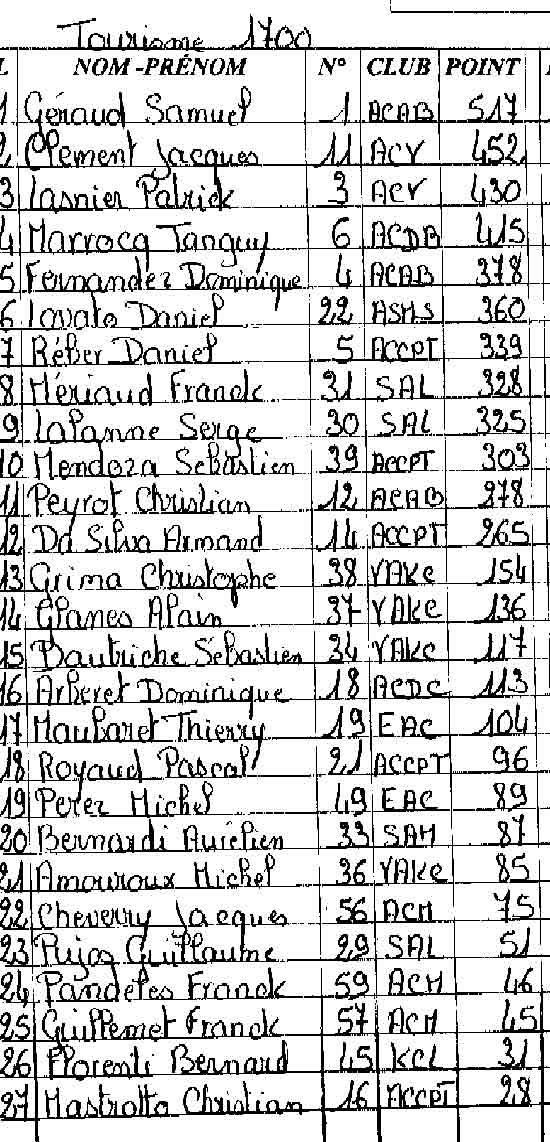 Tourisme 1700
L NOM -PRÉNOM N° CLUB POINT
1 Géraud Samuel 1 ACAB 517
2 Clement Jacques 11 ACV 452
3 Lasnier Patrick 3 ACV 430
4 Marrocq Tanguy 6 ACDB 415
5 Fernandez Dominique 4 ACAB 378
6 Lovato Daniel 22 ASMS 360
7 Réber Daniel 5 ACCPT 339
8 Mériaud Franck 31 SAL 328
9 Lalanne Serge 30 SAL 325
10 Mendoza Sebastien 39 ACCPT 303
11 Peyrot Christian 12 ACAB 278
12 Da Silva Armand 14 ACCPT 265
13 Grima Christophe 38 VAKC 154
14 Llanes Alain 37 VAKC 136
15 Bautriche Sébastien 34 VAKC 117
16 Arberet Dominique 18 ACDC 113
17 Maubaret Thierry 19 EAC 104
18 Royaud Pascal 21 ACCPT 96
19 Perez Michel 49 EAC 89
20 Bernardi Aurélien 33 SAM 87
21 Amouroux Michel 36 VAKC 85
22 Cheverry Jacques 56 ACM 75
23 Pujos Guillaume 29 SAL 51
24 Pandeles Franck 59 ACM 46
25 Guillemet Franck 57 ACM 45
26 Florenti Bernard 45 KCL 31
27 Mastrotto Christian 16 ACCPT 28